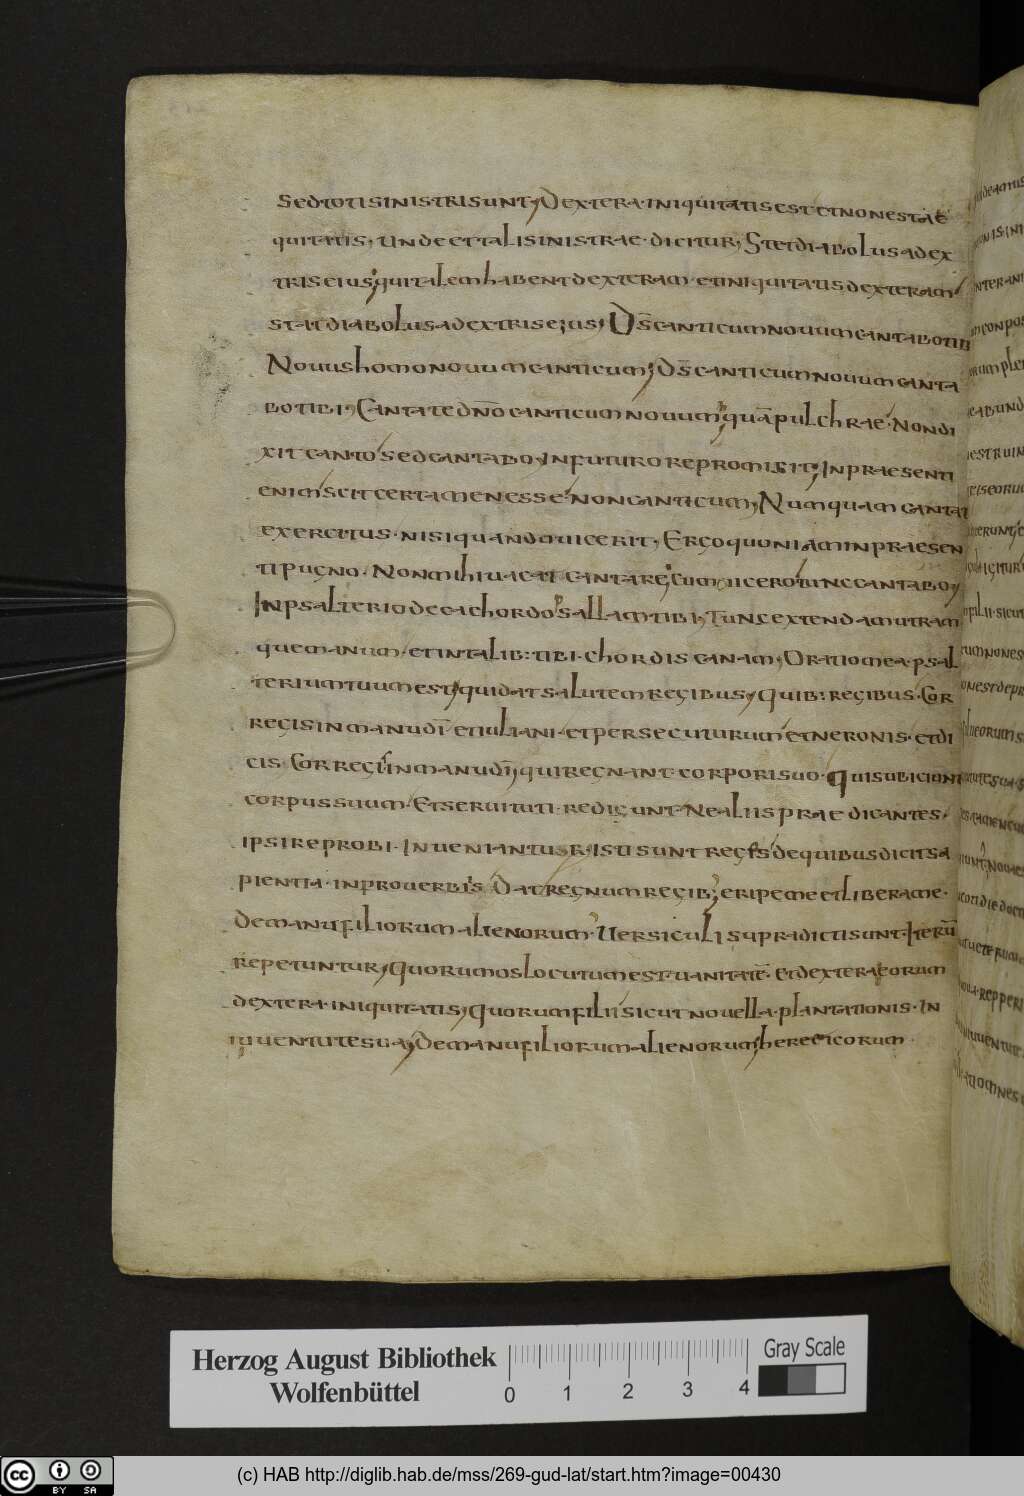 Sed toti sinistri sunt; Dextera · iniquitatis est et non est ae
quitatis; unde et talis sinistrae · dicitur; Stet diabolus a dex
tris eius; qui talem habent dexteram · et iniquitatis dexteram
stat diabolus a dextris eius; Ds̄ canticum novum cantabo tibi
Novus homo novum canticum; Ds̄ canticum novum canta
bo tibi; Cantate dn̄o canticum novum; quā pulchrae · Non di
xit canto sed cantabo; In futuro repromisit; In praesenti
enim scit certamen esse non canticum; Numquam cantat
exercitus · nisi quando vicerit; Ergo quoniam in praesen
ti pugno · Non mihi vacat cantare; cum vicero tunc cantabo;
In psalterio decachordo psallam tibi; Tunc extendam utram
que manum · et in talib: tibi · chordis canam; Oratio mea · psal
terium tuum est; qui dat salutem regibus; Quib: regibus · Cor
regis in manu dī et iuliani · et persecuturum et neronis · et di
cis Cor regis in manu dī; qui regnant corpori suo · qui subiciunt
corpus suum · Et servituti · redigunt · Ne aliis praedicantes ·
ipsi reprobi · Inveniantur · Isti sunt reges de quibus dicit sa
pientia · in proverbiis Dat regnum regib; eripe me et libera me ·
De manu filiorum alienorum · Versiculi supradicti sunt · Iterū
repetuntur; Quorum os locutum est vanitatē · et dextera eorum
dextera · iniquitatis; Quorum filii sicut novella · plantationis · In
iuventute sua; De manu filiorum alienorum; hereticorum ·
Herzog August Bibliothek
Wolfenbüttel
0 1 2 3 4
Gray Scale
cc BY SA
(c) HAB http://diglib.hab.de/mss/269-gud-lat/start.htm?image=00430